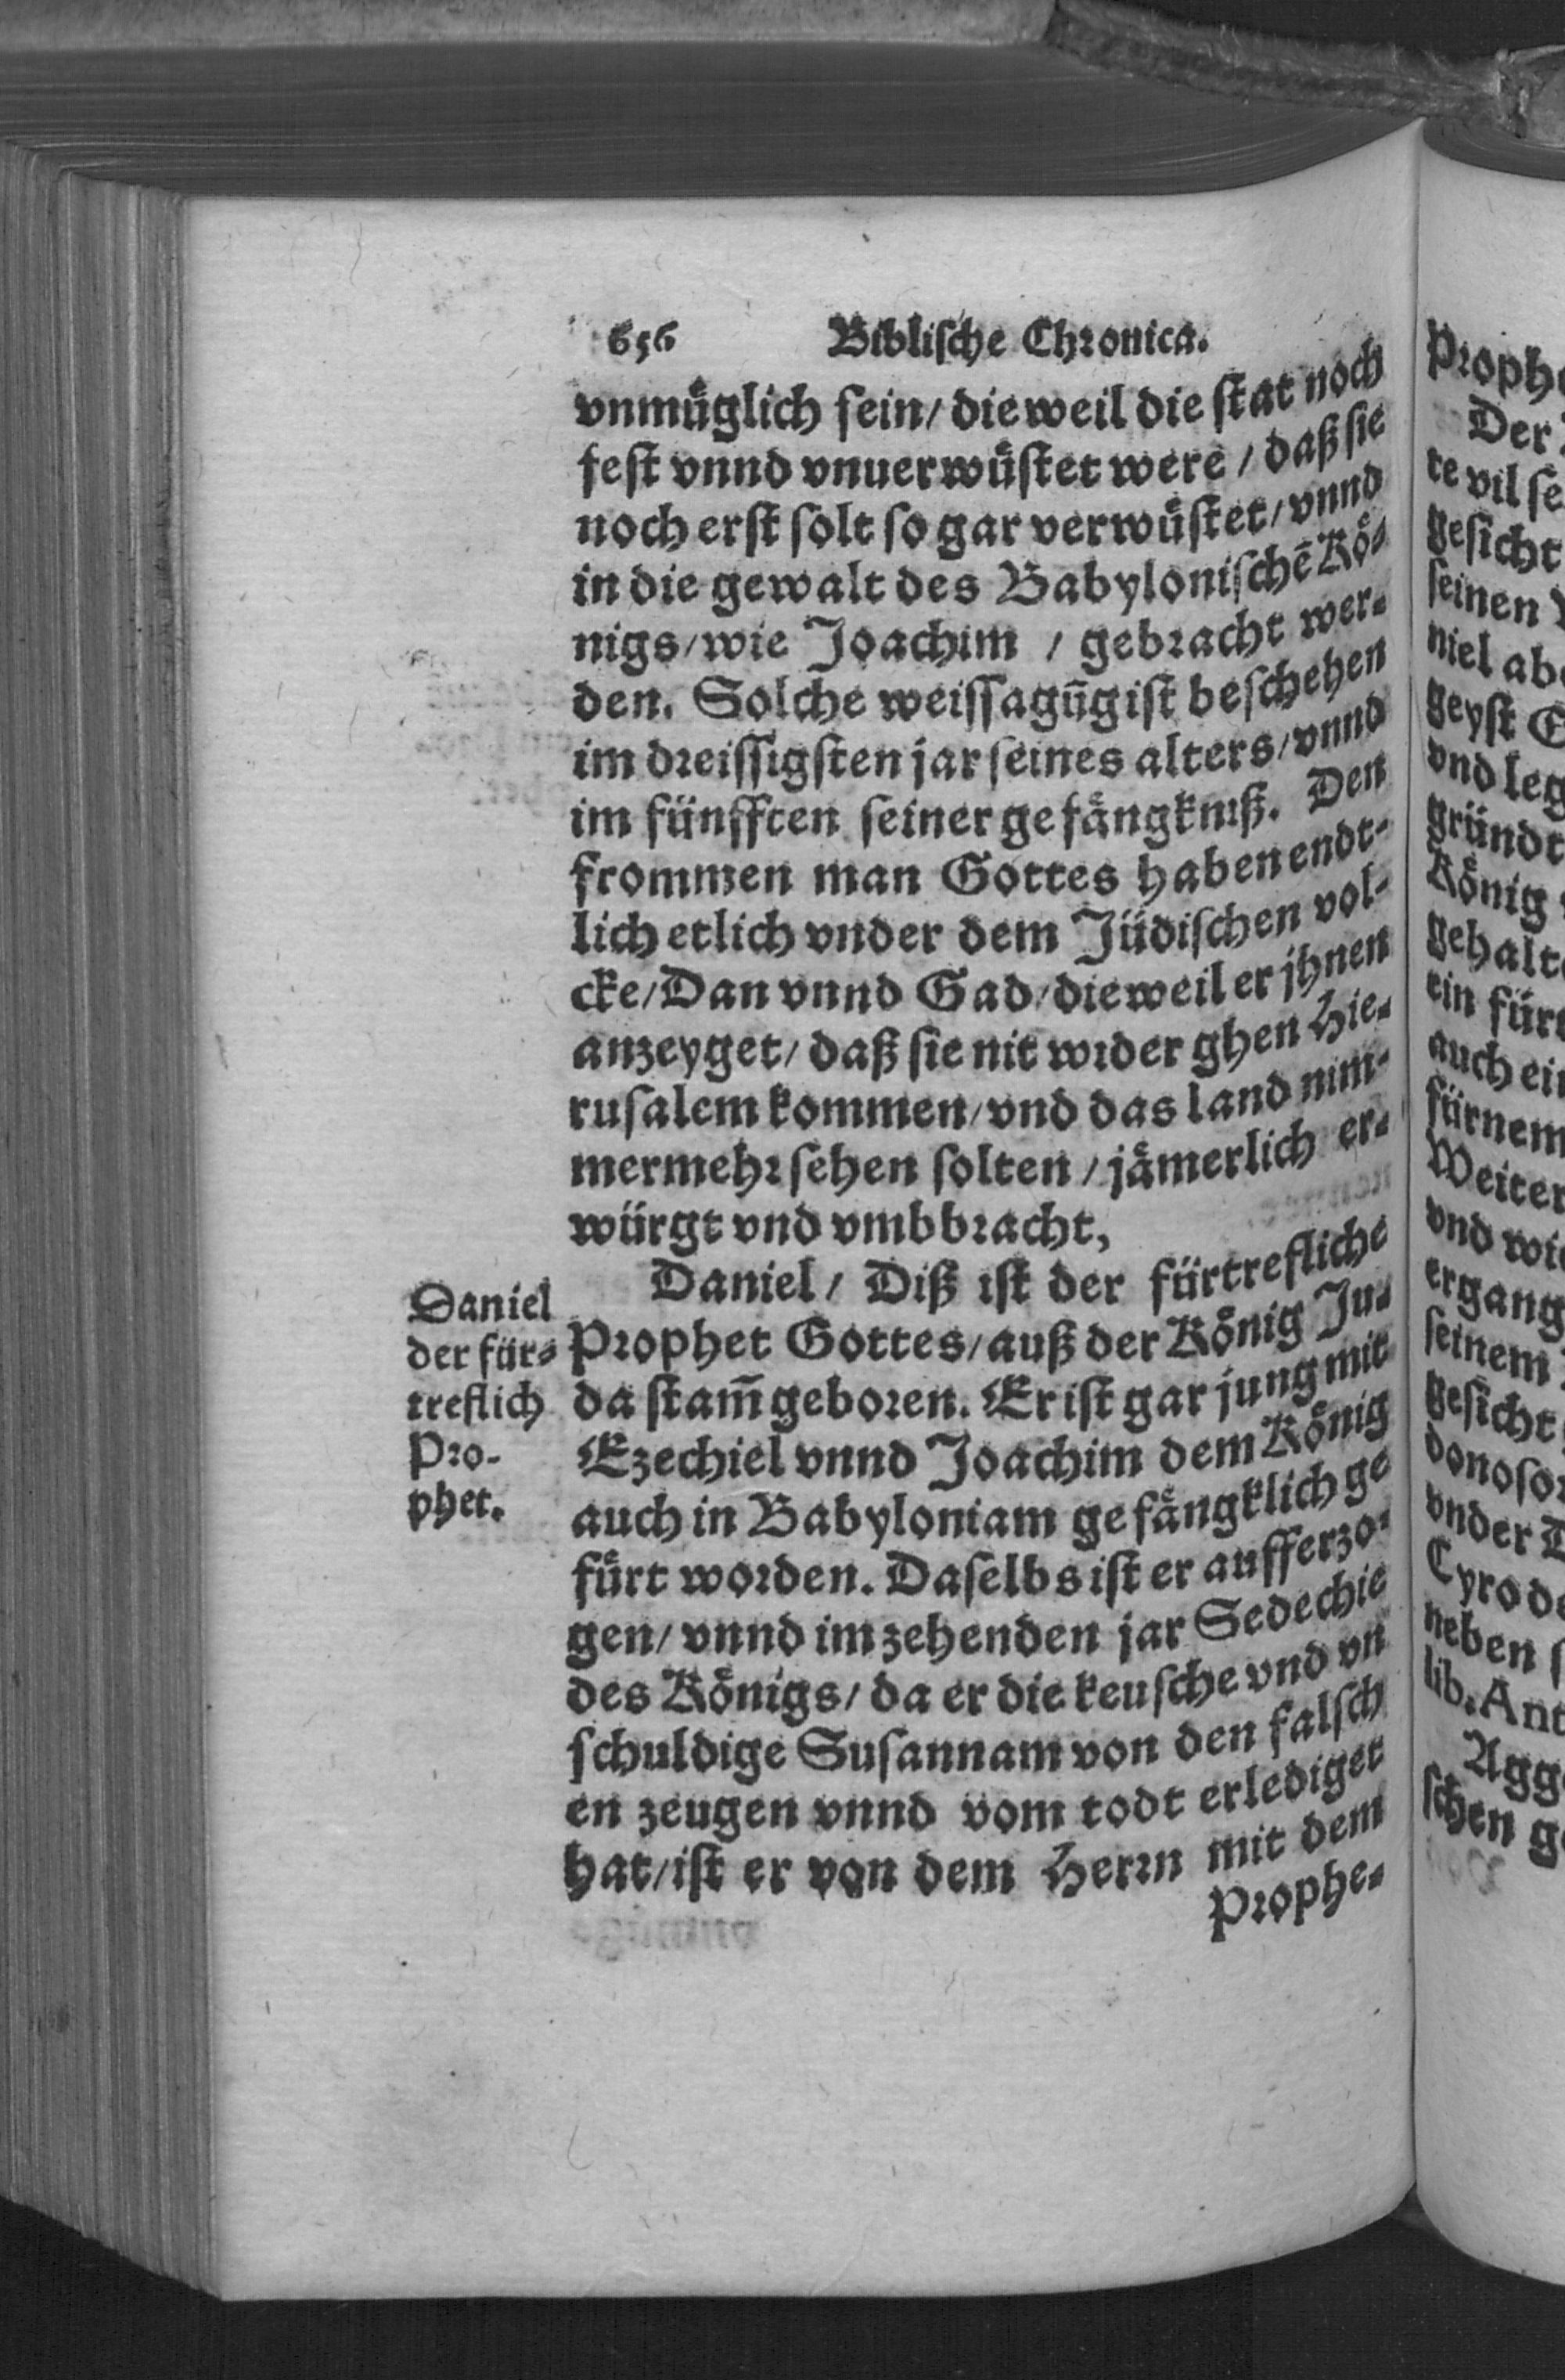 656 Biblische Chronica.
vnmüglich sein/ dieweil die stat noch
fest vnnd vnuerwüstet were / daß sie
noch erst solt so gar verwüstet/ vnnd
in die gewalt des Babylonischē Kö-
nigs/ wie Joachim / gebracht wer-
den. Solche weissagūg ist beschehen
im dreissigsten jar seines alters/ vnnd
im fünfften seiner gefängkniß. Den
frommen man Gottes haben endt-
lich etlich vnder dem Jüdischen vol-
cke/ Dan vnnd Gad/ dieweil er jhnen
anzeyget/ daß sie nit wider ghen Hie-
rusalem kommen/ vnd das land nim-
mermehr sehen solten / jämerlich er-
würgt vnd vmbbracht,
Daniel / Diß ist der fürtrefliche
Prophet Gottes/ auß der König Ju-
da stam̄ geboren. Er ist gar jung mit
Ezechiel vnnd Joachim dem König
auch in Babyloniam gefängklich ge
fürt worden. Daselbs ist er aufferzo-
gen/ vnnd im zehenden jar Sedechie
des Königs/ da er die keusche vnd vn
schuldige Susannam von den falsch
en zeugen vnnd vom todt erlediget
hat/ ist er von dem Herrn mit dem
Prophe-
Daniel
der für-
treflich
Pro-
phet.
Proph
Der
re vil se
gesicht
seinen
niel ab
geyst E
vnd leg
gründt
König
gehalt
ein für
auch ei
fürnem
Weiter
vnd wi
ergang
seinem
gesicht
donosor
vnder D
Cyro de
neben s
lib. Ant
Agg
schen g